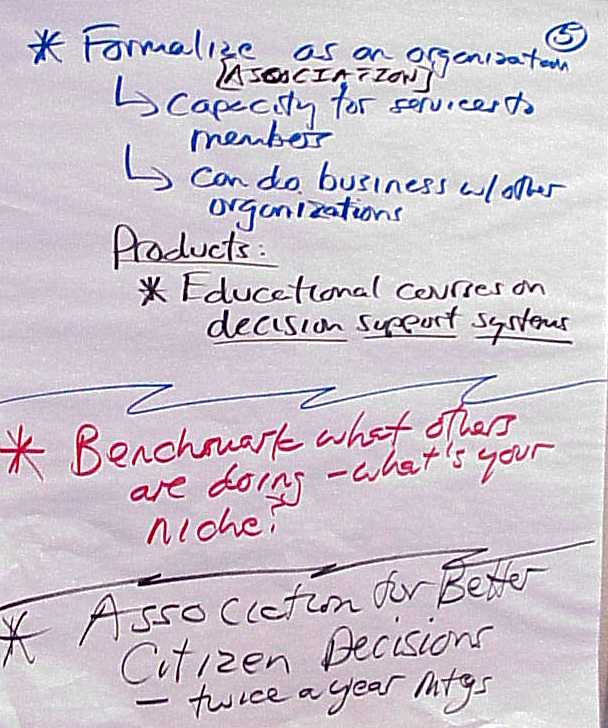 ⑤
* Formalize as an organization
[ASSOCIATION]
↳ Capacity for services to
members
↳ can do business w/other
organizations
Products:
* Educational courses on
decision support systems
* Benchmark what others
are doing - what's your
niche?
* Association for Better
Citizen Decisions
- twice a year mtgs